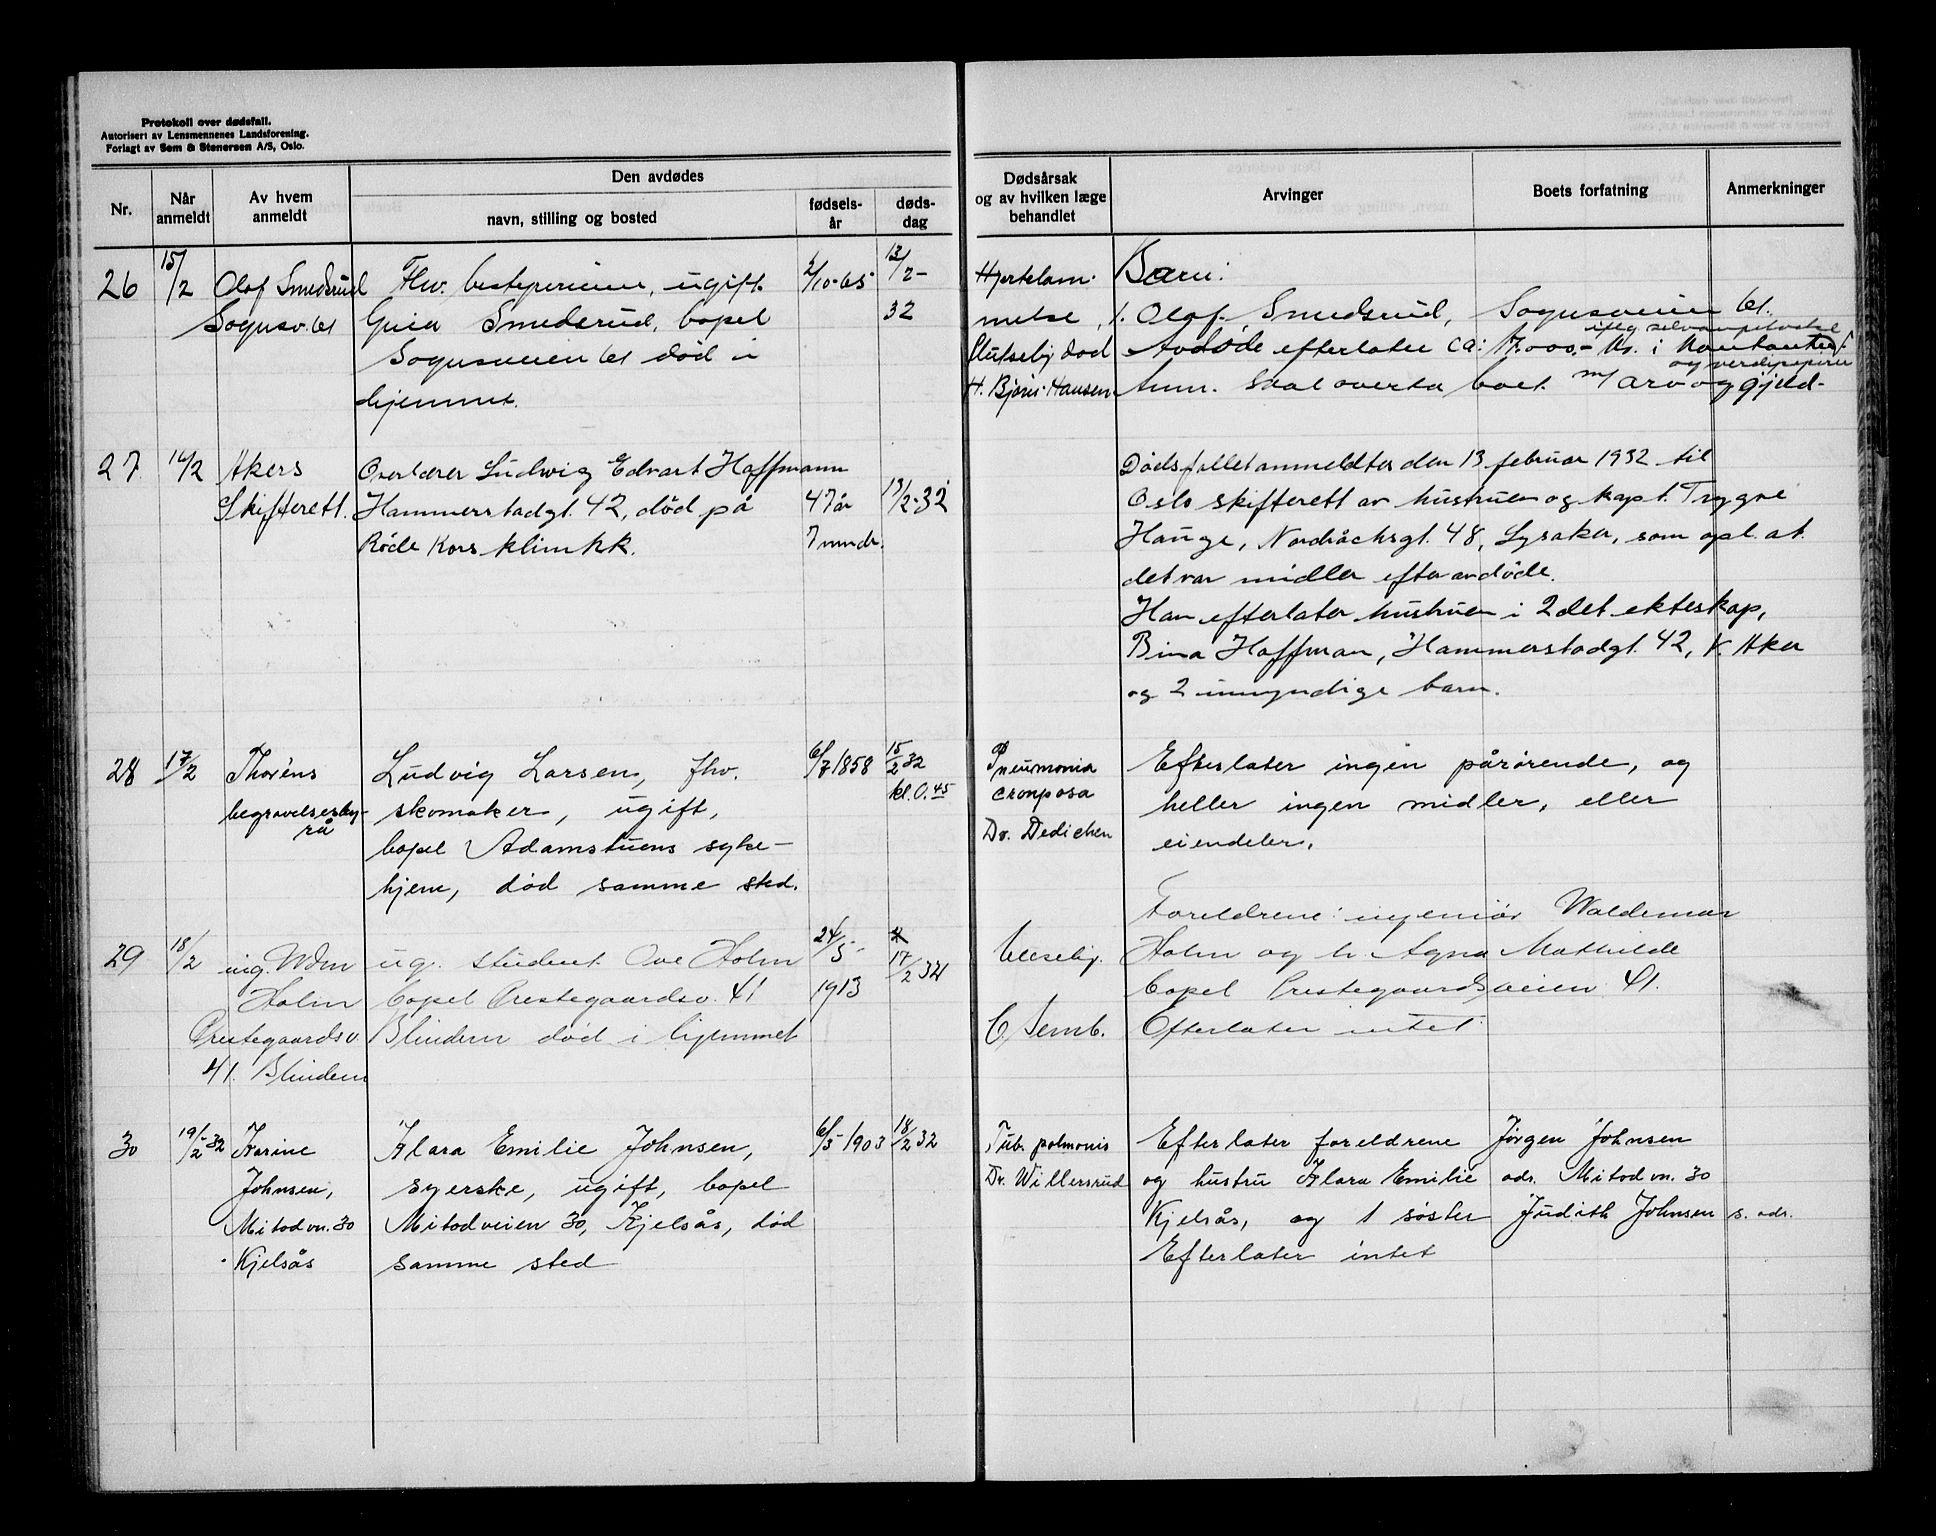 Protokoll over dødsfall.
Autorisert av Lensmennenes Landsforening.
Forlagt av Sem & Stenersen A/S, Oslo.
Nr.
Når anmeldt
Av hvem anmeldt
Den avdødes
navn, stilling og bosted
fødselsår
dødsdag
Dødsårsak og av hvilken læge behandlet
Arvinger
Boets forfatning
Anmerkninger
26
15/2
Olaf Smedsrud
Sognsv. 61
Fhv. ugift
Smedsrud, bopel
Sognsveien 61 død i
hjemmet.
2/10-65
13/2-
32
Hjertelam-
melse,
død
H. Bjørn-Hansen
Barn:
1. Olaf Smedsrud, Sognsveien 61.
Avdøde efterlater ca: 17.000,- kr. i kontanter
iflg selvangivelse
og verdipapirer
Anm. skal overta boet m/ arv og gjeld-
27
14/2
Akers
Skifterett.
Overlærer Ludwig Edvart Hoffmann
Hammerstadgt. 42, død på
Røde Kors klinikk.
47 år
7 mndr.
13/2-32
Dødsfallet anmeldtes den 13 februar 1932 til
Oslo skifterett av hustruen og kapt. Trygve
Hauge, Nordråchsgt. 48, Lysaker, som opl. at
det var midler efter avdøde.
Han efterlater hustruen i 2det ekteskap,
Bina Hoffman, Hammerstadgt. 42, V. Aker
og 2 umyndige barn.
28
17/2
Thorêns
begravelsesby-
rå
Ludvig Larsen, fhv.
skomaker, ugift,
bopel Adamstuens syke-
hjem, død samme sted.
6/7 1858
15/2 32
kl. 0.45
Pneumonia
cronposa
Dr. Dedichen
Efterlater ingen pårørende, og
heller ingen midler, eller
eiendeler.
29
18/2
ing. Wdm
Holm
Prestegaardsv
41. Blindern
ug. student Ove Holm
bopel Prestegaardsv. 41
Blindern død i hjemmet
24/5-
1913
17/2 32
C. Semb.
Foreldrene: ingeniør Waldemar
Holm og h. Agna Mathilde
bopel Prestegaardsveien 41.
Efterlater intet
30
19/2-32
Karine
Johnsen,
Mitodvn. 30
Kjelsås
Klara Emilie Johnsen,
syerske, ugift, bopel
Mitodveien 30, Kjelsås, død
samme sted
6/5-1903
18/2 32
Tub. polmonis
Dr. Willersrud
Efterlater foreldrene Jørgen Johnsen
og hustru Klara Emilie adr. Mitodvn. 30
Kjelsås, og 1 søster Judith Johnsen s. adr.
Efterlater intet